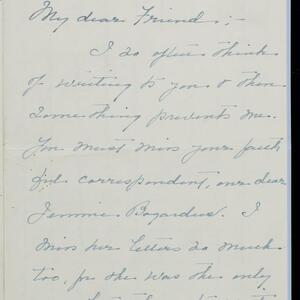 My dear Friend:-
I so often think
of writing to you & then
something prevents me.
You must miss your faith
ful correspondent, our dear
Jennie Bogardus. I
miss her letters so much
too, for she was the only